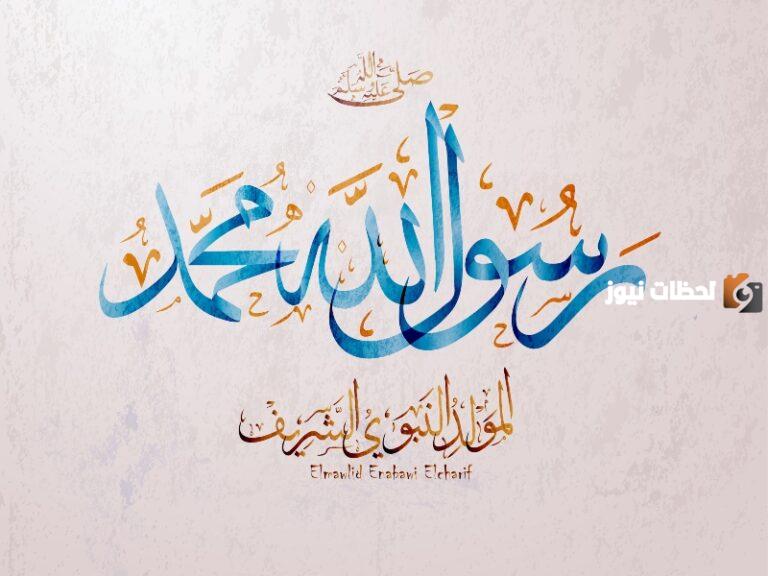 صَلَّى اللَّه عَلَيْهِ وَسَلَّم
رَسُول اللَّه مُحَمَّد
لحظات نيوز
المَوْلِدُ النَبَوِيُّ الشَّرِيف
Elmawlid Enabawi Elcharif